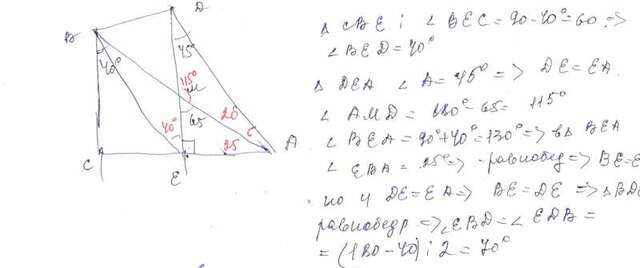 B
D
40°
45°
115°
M
65
20
40°
25
C
E
A
Δ CBE ; ∠ BEC = 90-40°=60 =>
∠ BED = 40°
Δ DEA ∠ A = 45° => DE = EA.
∠ AMD = 180°-65= 115°
∠ BEA = 90°+40°=130° => в Δ BEA
∠ EBA = 25° => -равнобед => BE=E
но и DE=EA => BE=DE => ΔBD
равнобедр => ∠EBD=∠ EDB =
= (180-40) : 2 = 70°